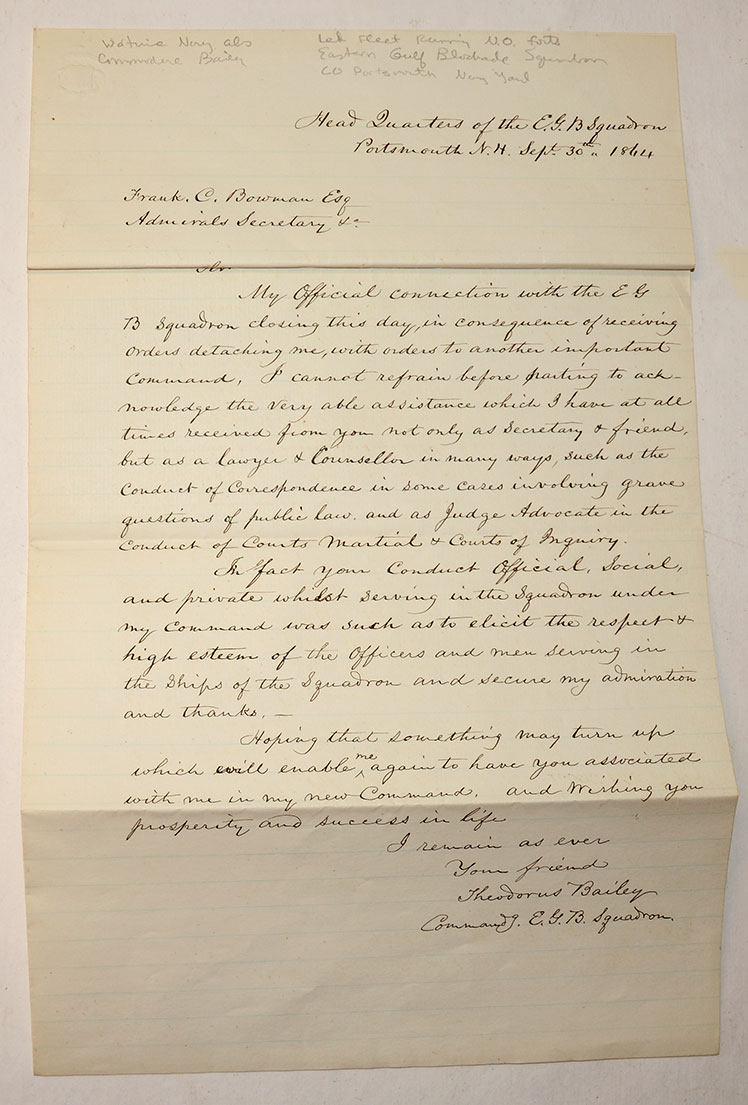 Wartime Navy als
Commodore Bailey
Led Fleet Running N.O. forts
Eastern Gulf Blockade Squadron
CO Portsmouth Navy Yard
Head Quarters of the E.G.B Squadron
Portsmouth N.H. Sept. 30th 1864
Frank. C. Bowman Esq
Admirals Secretary &c
Sir
My Official connection with the E G
B Squadron closing this day, in consequence of receiving
orders detaching me, with orders to another important
Command, I cannot refrain before parting to ack-
nowledge the very able assistance which I have at all
times received from you not only as Secretary & friend,
but as a lawyer & Counsellor in many ways, such as the
Conduct of Correspondence in some cases involving grave
questions of public law. and as Judge Advocate in the
Conduct of Courts Martial & Courts of Inquiry.
In fact your Conduct Official, Social,
and private whilst serving in the Squadron under
my Command was such as to elicit the respect &
high esteem of the Officers and men serving in
the Ships of the Squadron and secure my admiration
and thanks. —
Hoping that something may turn up
which will enable me again to have you associated
with me in my new Command. and Wishing you
prosperity and success in life
I remain as ever
Your friend
Theodorus Bailey
Commandg. E.G.B. Squadron.